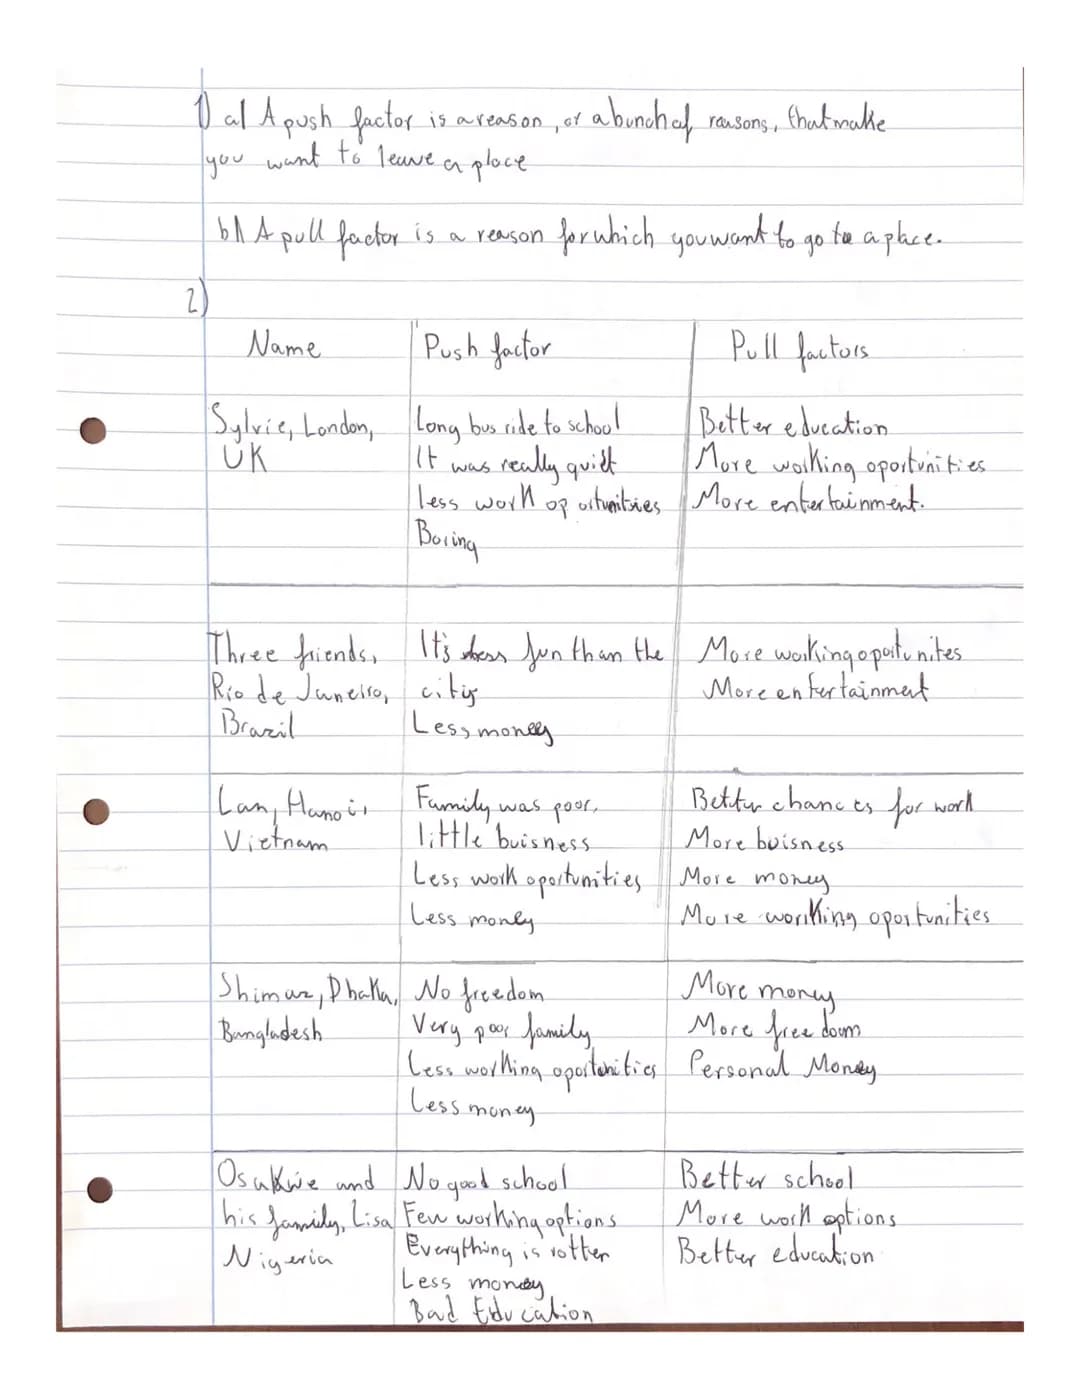 1) a) A push factor is a reason, or a bunch of reasons, that make
you want to leave a place
b) A pull factor is a reason for which you want to go to a place.
2)
Name Push factor Pull factors
Sylvie, London, Long bus ride to school Better education
UK It was really quiet More working oportunities
less work oportunities More entertainment.
Boring
Three friends, It's less fun than the More working oportunites
Rio de Janeiro, city More entertainment
Brazil Less money
Lan, Hanoi, Family was poor, Better chances for work
Vietnam little buisness More buisness
Less work oportunities More money
Less money More working oportunities
Shimaz, Dhaka, No freedom More money
Bangladesh Very poor family More freedom
Less working oportunities Personal Money
Less money
Osakwe and No good school Better school
his family, Lisa Few working options More work options
Nigeria Everything is rotten Better education
Less money
Bad Education